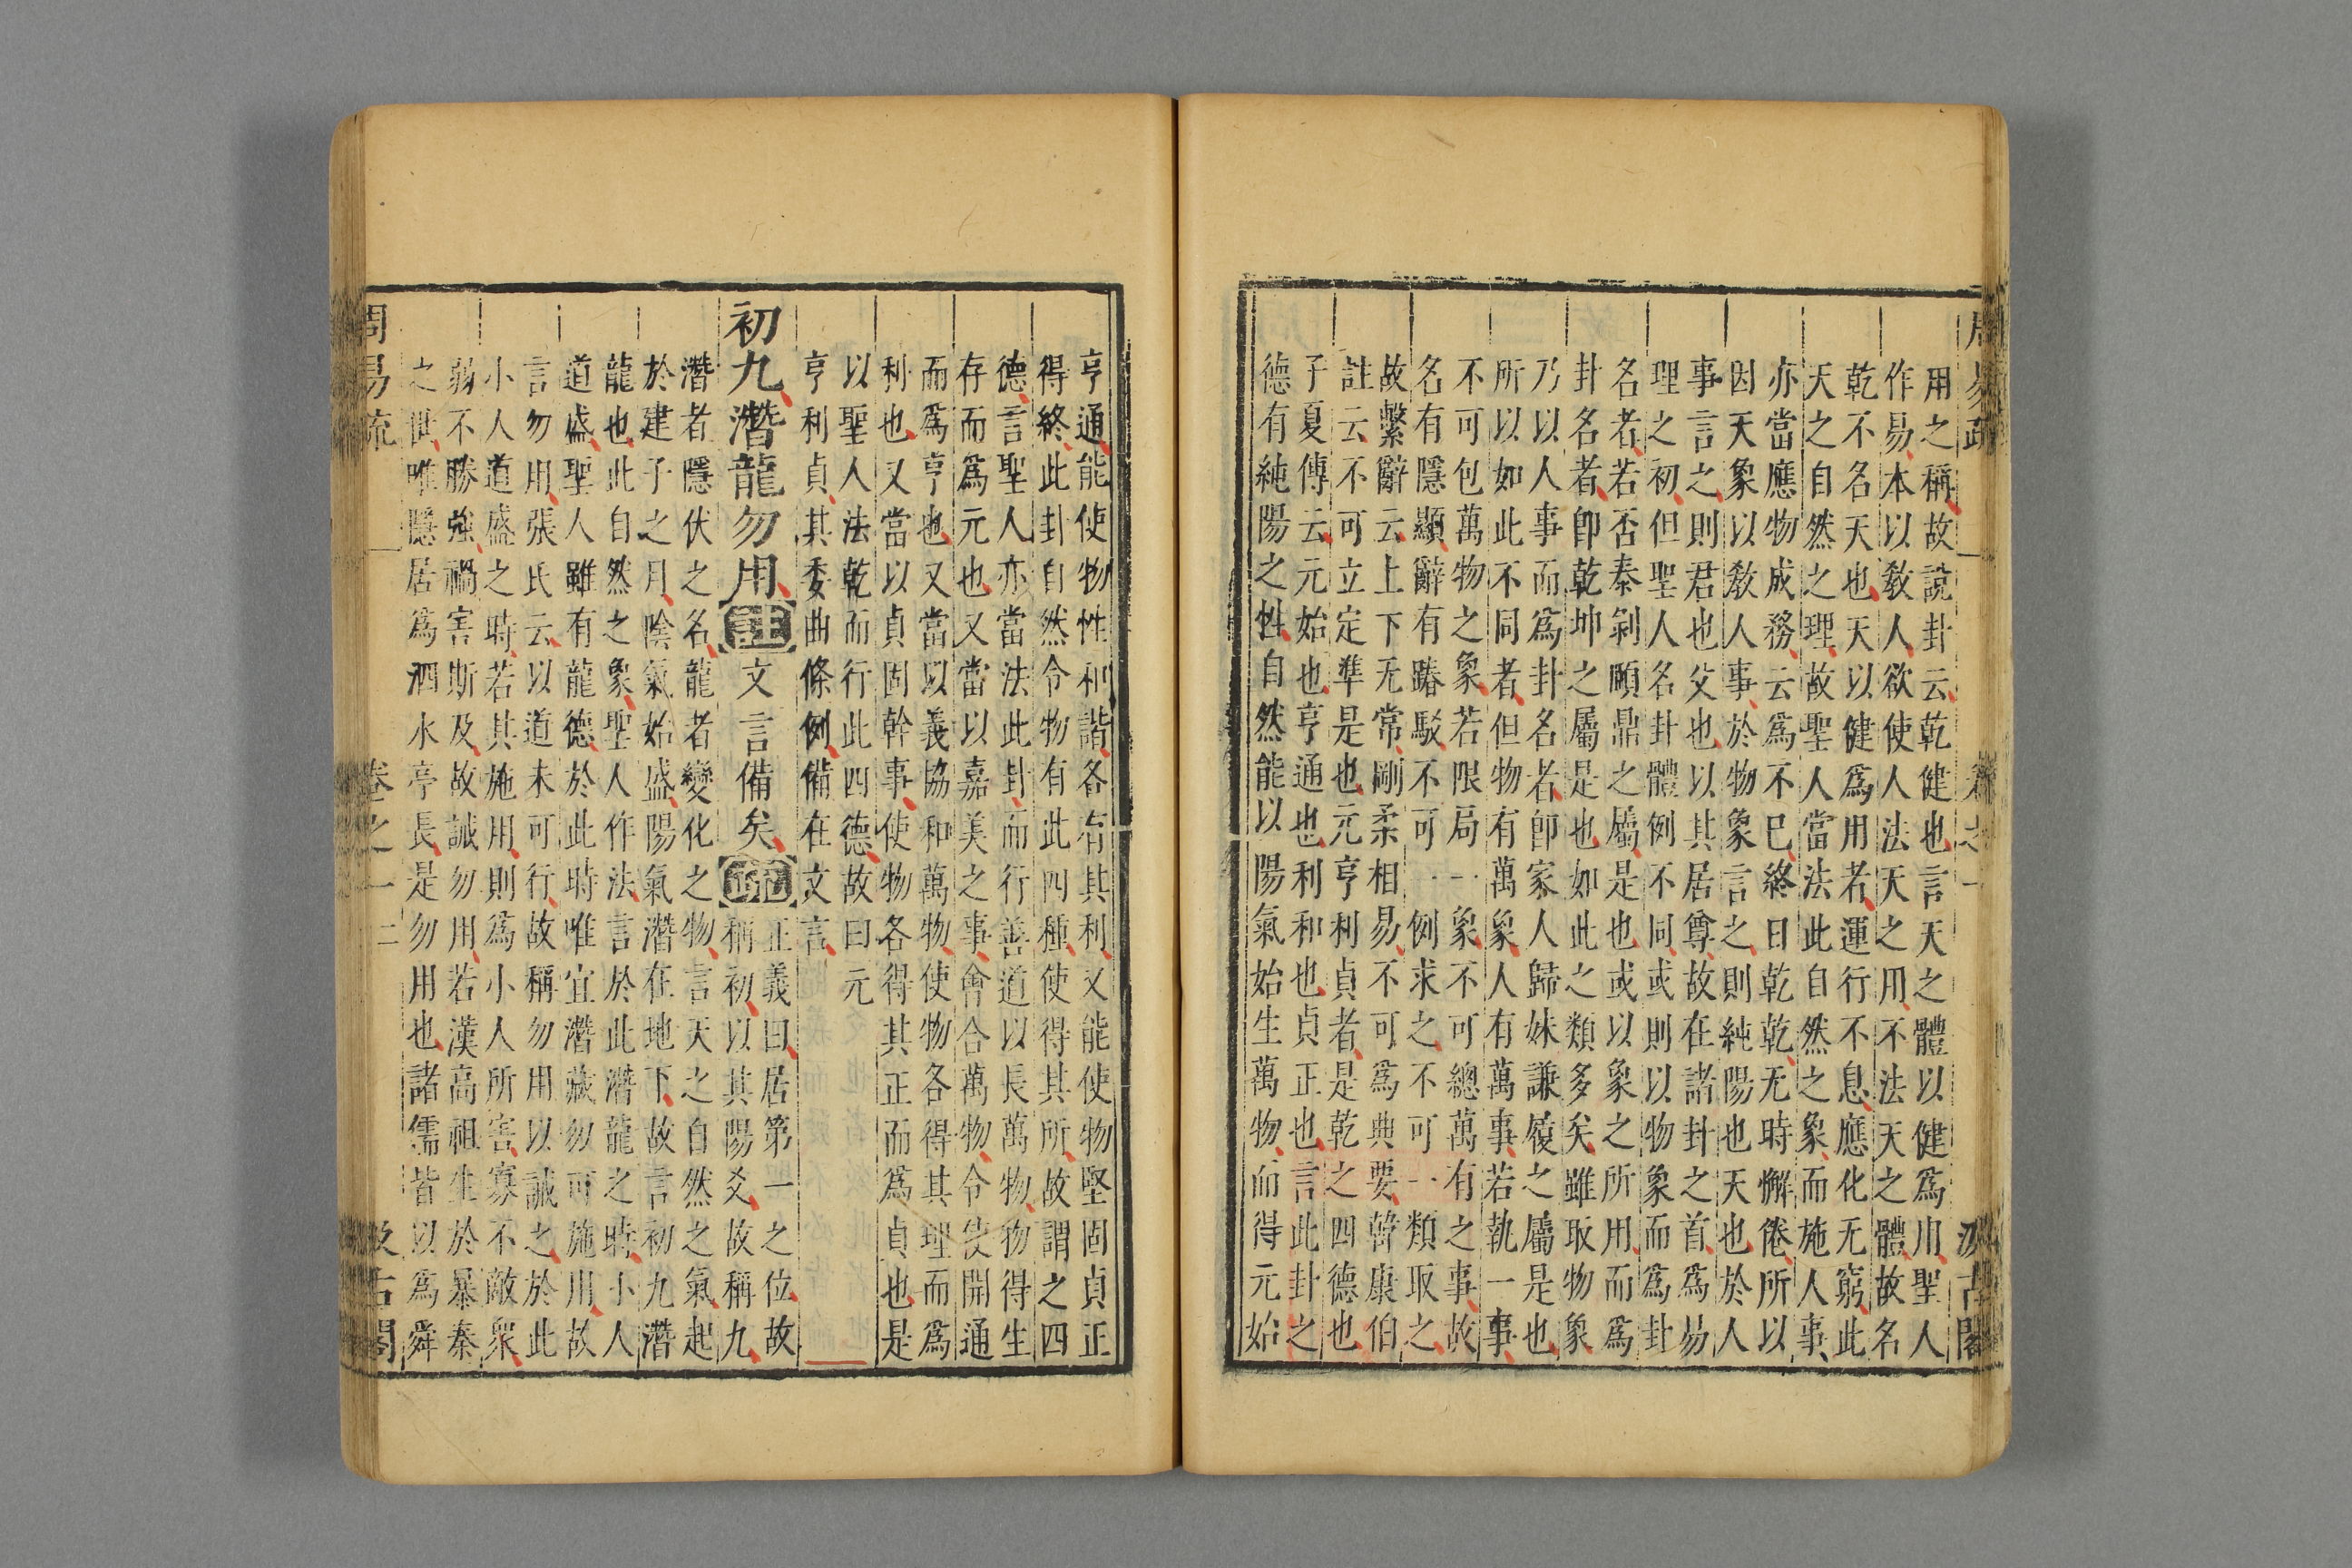 周易疏 卷之一 汲古閣
用之稱故說卦云乾健也言天之體以健爲用聖人
作易本以敎人欲使人法天之用不法天之體故名
乾不名天也天以健爲用者運行不息應化无窮此
天之自然之理故聖人當法此自然之象而施人事
亦當應物成務云爲不已終日乾乾无時懈倦所以
因天象以敎人事於物象言之則純陽也天也於人
事言之則君也父也以其居尊故在諸卦之首爲易
理之初但聖人名卦體例不同或則以物象而爲卦
名者若否泰剝頤鼎之屬是也或以象之所用而爲
卦名者卽乾坤之屬是也如此之類多矣雖取物象
乃以人事而爲卦名者卽家人歸妹謙履之屬是也
所以如此不同者但物有萬象人有萬事若執一事
不可包萬物之象若限局一象不可總萬有之事故
名有隱顯辭有踳駁不可一例求之不可一類取之
故繫辭云上下无常剛柔相易不可爲典要韓康伯
註云不可立定準是也元亨利貞者是乾之四德也
子夏傳云元始也亨通也利和也貞正也言此卦之
德有純陽之性自然能以陽氣始生萬物而得元始
亨通能使物性和諧各有其利又能使物堅固貞正
得終此卦自然令物有此四種使得其所故謂之四
德言聖人亦當法此卦而行善道以長萬物物得生
存而爲元也又當以嘉美之事會合萬物令使開通
而爲亨也又當以義協和萬物使物各得其理而爲
利也又當以貞固幹事使物各得其正而爲貞也是
以聖人法乾而行此四德故曰元
亨利貞其委曲條例備在文言
初九潛龍勿用註文言備矣疏正義曰居第一之位故
稱初以其陽爻故稱九
潛者隱伏之名龍者變化之物言天之自然之氣起
於建子之月陰氣始盛陽氣潛在地下故言初九潛
龍也此自然之象聖人作法言於此潛龍之時小人
道盛聖人雖有龍德於此時唯宜潛藏勿可施用故
言勿用張氏云以道未可行故稱勿用以誡之於此
小人道盛之時若其施用則爲小人所害寡不敵衆
弱不勝強禍害斯及故誡勿用若漢高祖生於暴秦
之世唯隱居爲泗水亭長是勿用也諸儒皆以爲舜
周易疏 卷之一 二 汲古閣